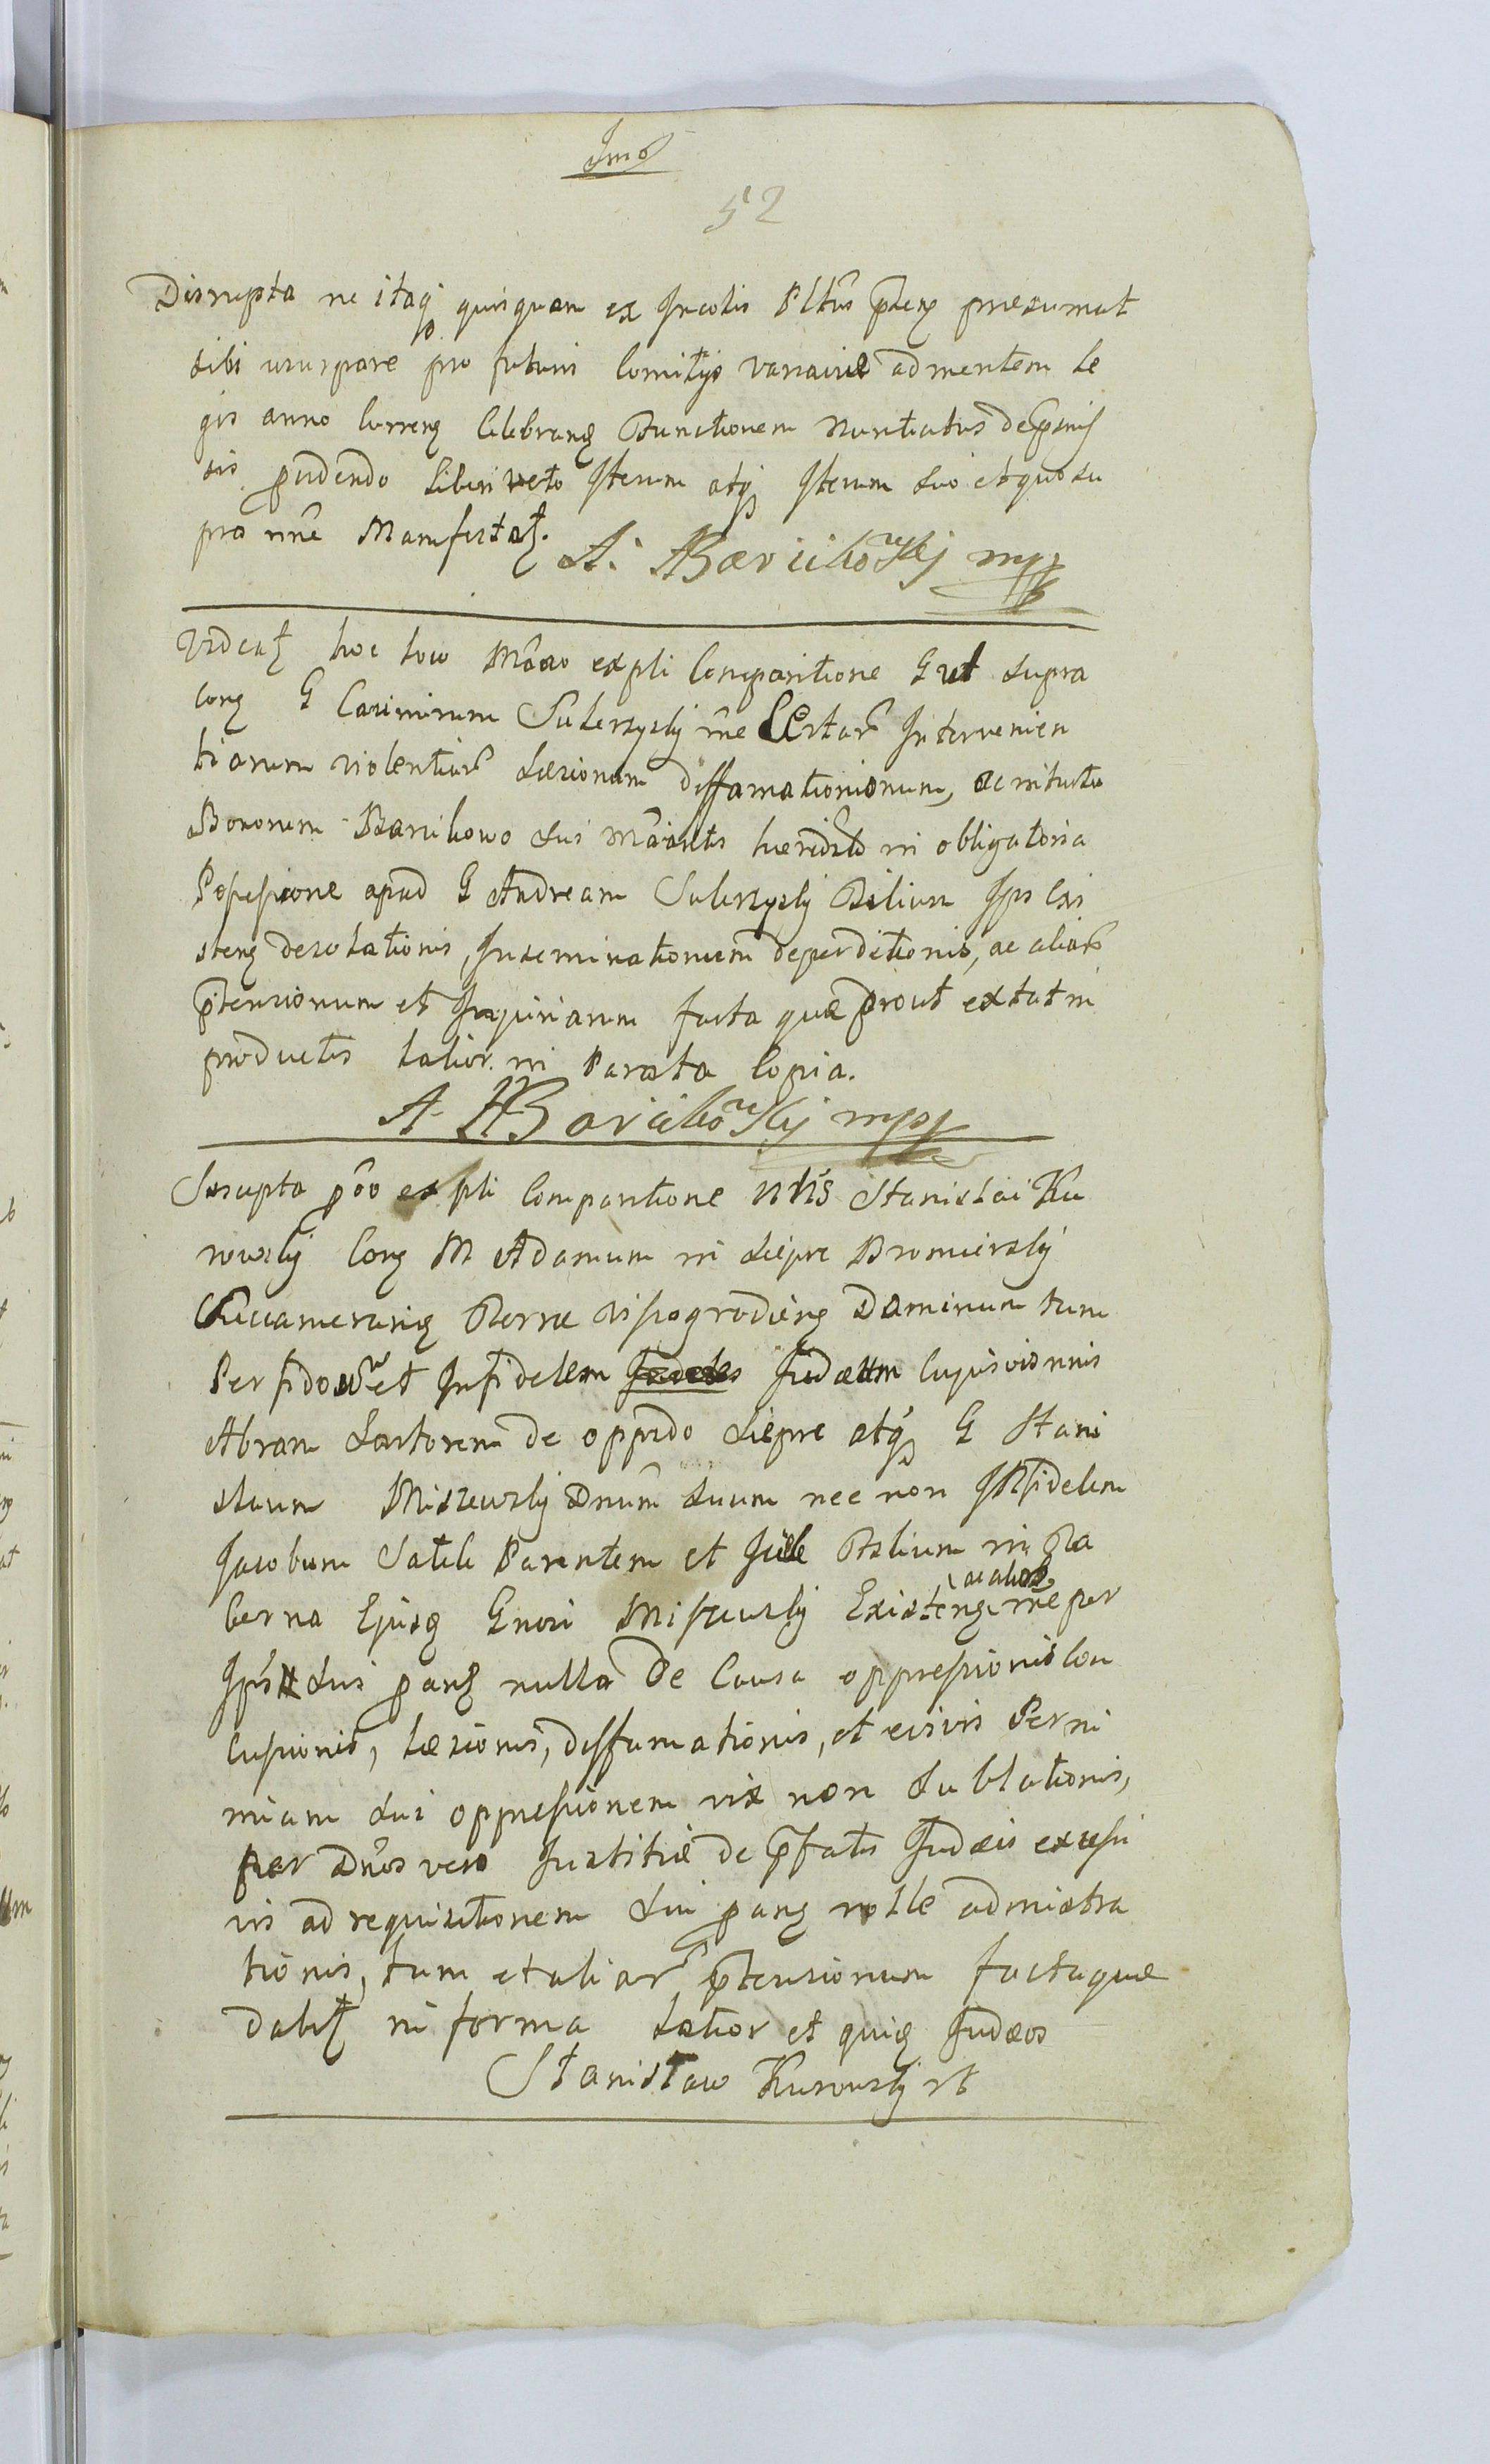 52
Disrupta ne itaq quisquam ex Incolis Pltūs p̄tens praesumat
sibi usurpare pro futuris Comitijs varsaviae ad mentem le
gis anno currenᶎ Celebranᶎ Functionem Nuntiatus de
sis p̄cudendo Liberi veto Iterum atqᶎ Iterum suo et quo su
pra nñe Manifestatᶎ.
A: Barcikowskj mpp
Videatᶎ hoc loco Mãao expli Comparitione G ut supra
conᶎ G Casimirum Sulerzyskj rñe Certar Intervenien
tiarum violentiar Laesionum diffamationionum, ac intuitu
Bonorum Barcikowo sui haeredit in obligatoria
Possessione apud G Andream Sulerzyskj Filium Ips Exis
stenᶎ desolationis, Inseminationum deperditionis, ac aliar
p̄tensionum et Injuriarum facta quae prout extat in
productis latior. in Parata Copia.
A Barcikowskj mpp
Suscepta p̄vo expli Comparitione Nltis Stanislai Ku
rowskj Conᶎ M Adamum in Siepre Bromierskj
Succamerariᶎ Terrae Wyssogrodienᶎ Dominum tum
Perfidow et Infidelem Judaeum cujusvis nnis
Abram Sartorem de oppido Siepre atqᶎ G Stani
slaum Miszewskj Dnum suum nec non Infidelem
Jacobum Parentem et Filium in Ta
berna Ejusᶎ Gnosi Misszewskj Existenᶎ ac alios rñe per
Ips sui p̄anᶎ nulla de Causa oppressionis con
cussionis, laesionis, diffamationis, et eisvis Per ni
miam sui oppressionem vix non Sublationis,
per Dnos vero Justitiae de p̄fatis Judaeis excessi
vis ad requisitionem sui p̄anᶎ nolle admistra
tionis, tum et aliar p̄tensionum facta quae
dabitᶎ in forma latior et quiᶎ Judaeos
Stanisław Kurowskj rt